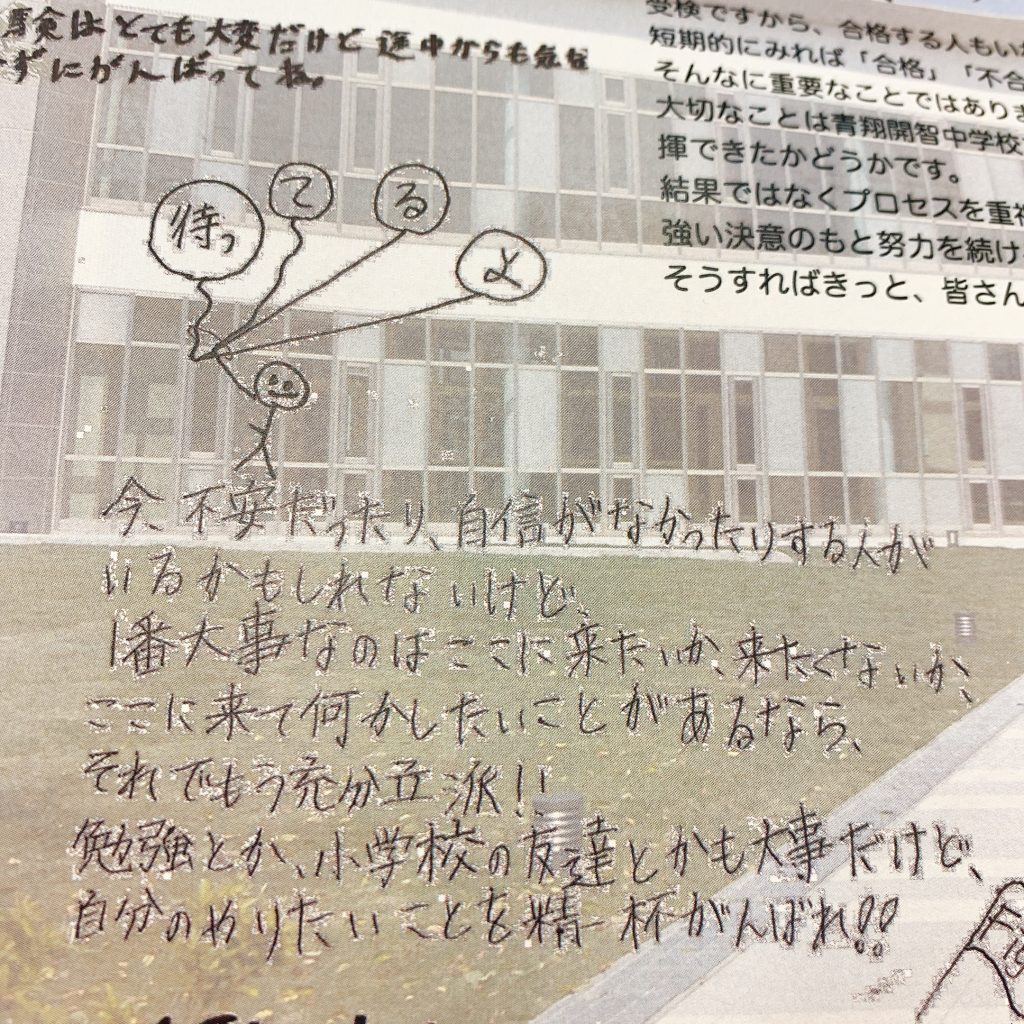 受検はとても大変だけど 途中からも気な
ずにがんばってね。
受検ですから、合格する人もい
短期的にみれば「合格」「不合
そんなに重要なことではありま
大切なことは青翔開智中学校
揮できたかどうかです。
結果ではなくプロセスを重視
強い決意のもと努力を続け
そうすればきっと、皆さん
待っ
て
る
よ
今、不安だったり、自信がなかったりする人が
いるかもしれないけど、
1番大事なのはここに来たいか、来たくないか、
ここに来て何かしたいことがあるなら、
それでもう充分立派!!
勉強とか、小学校の友達とかも大事だけど、
自分のやりたいことを精一杯がんばれ!!